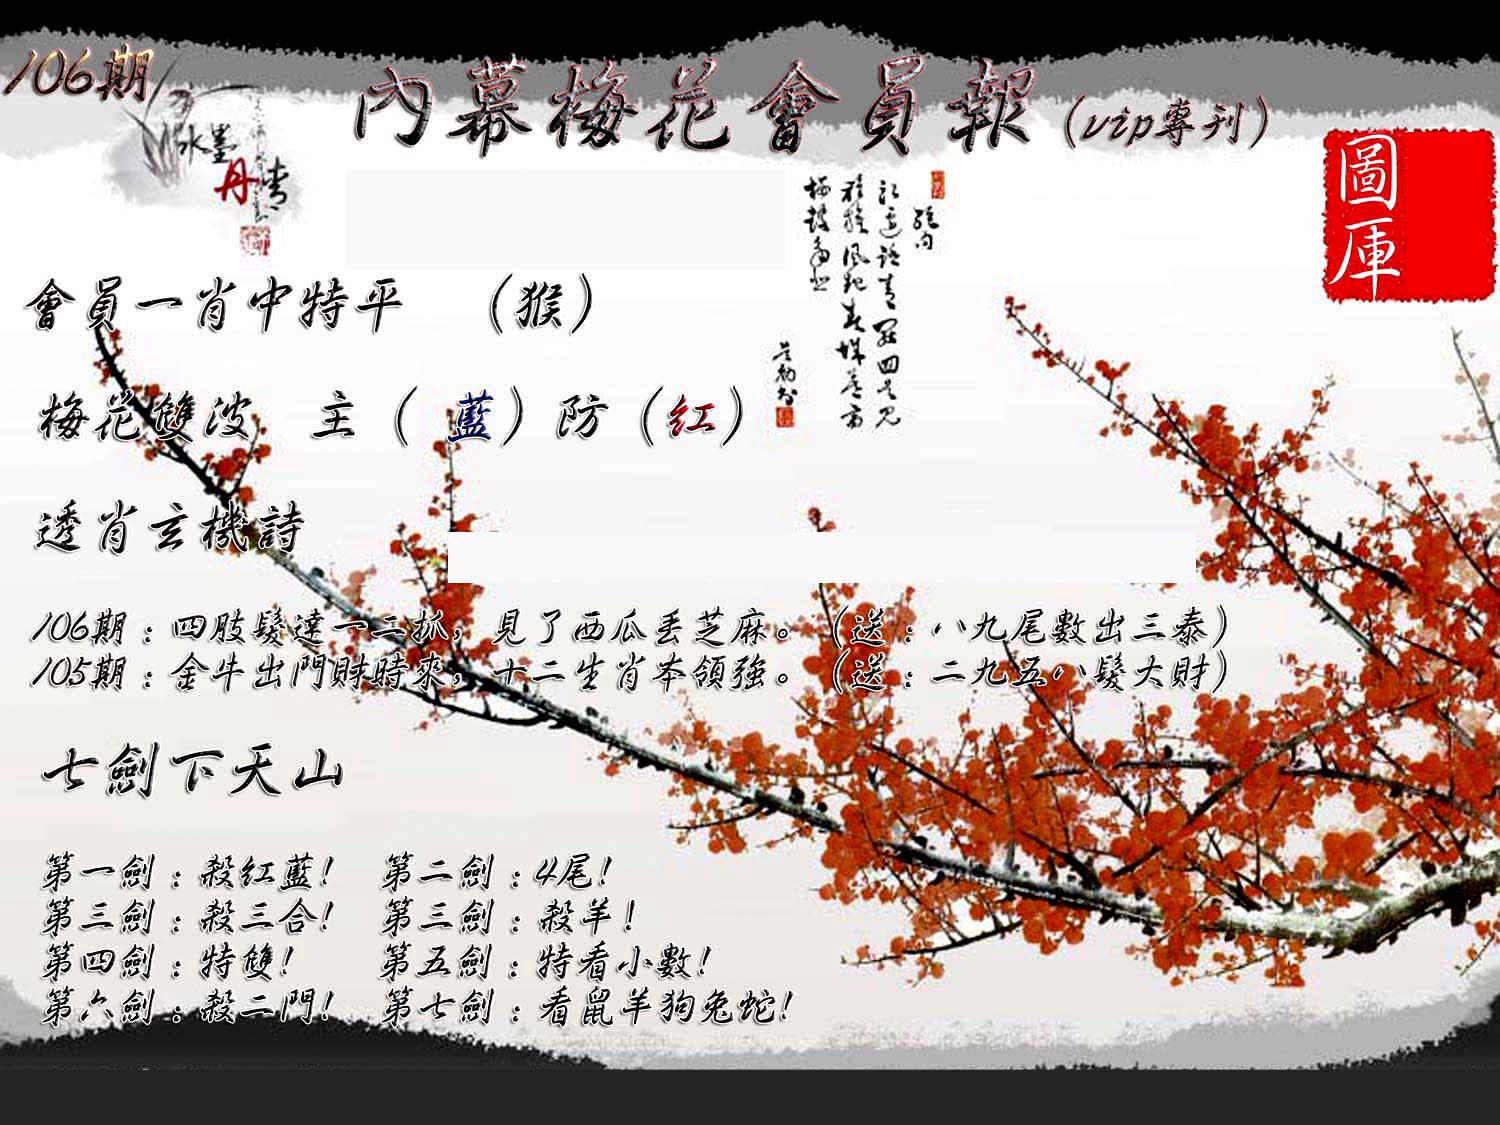 106期
內幕梅花會員報（vip專刊）
水墨
丹青
圖庫
會員一肖中特平 （猴）
梅花雙波 主（ 藍）防（紅）
透肖玄機詩
106期：四肢髮達一二抓，見了西瓜丢芝麻。（送：八九尾數出三泰）
105期：金牛出門財時來，十二生肖本領強。（送：二九五八髮大財）
七劍下天山
第一劍：殺紅藍! 第二劍：4尾!
第三劍：殺三合! 第三劍：殺羊!
第四劍：特雙! 第五劍：特看小數!
第六劍：殺二門! 第七劍：看鼠羊狗兔蛇!